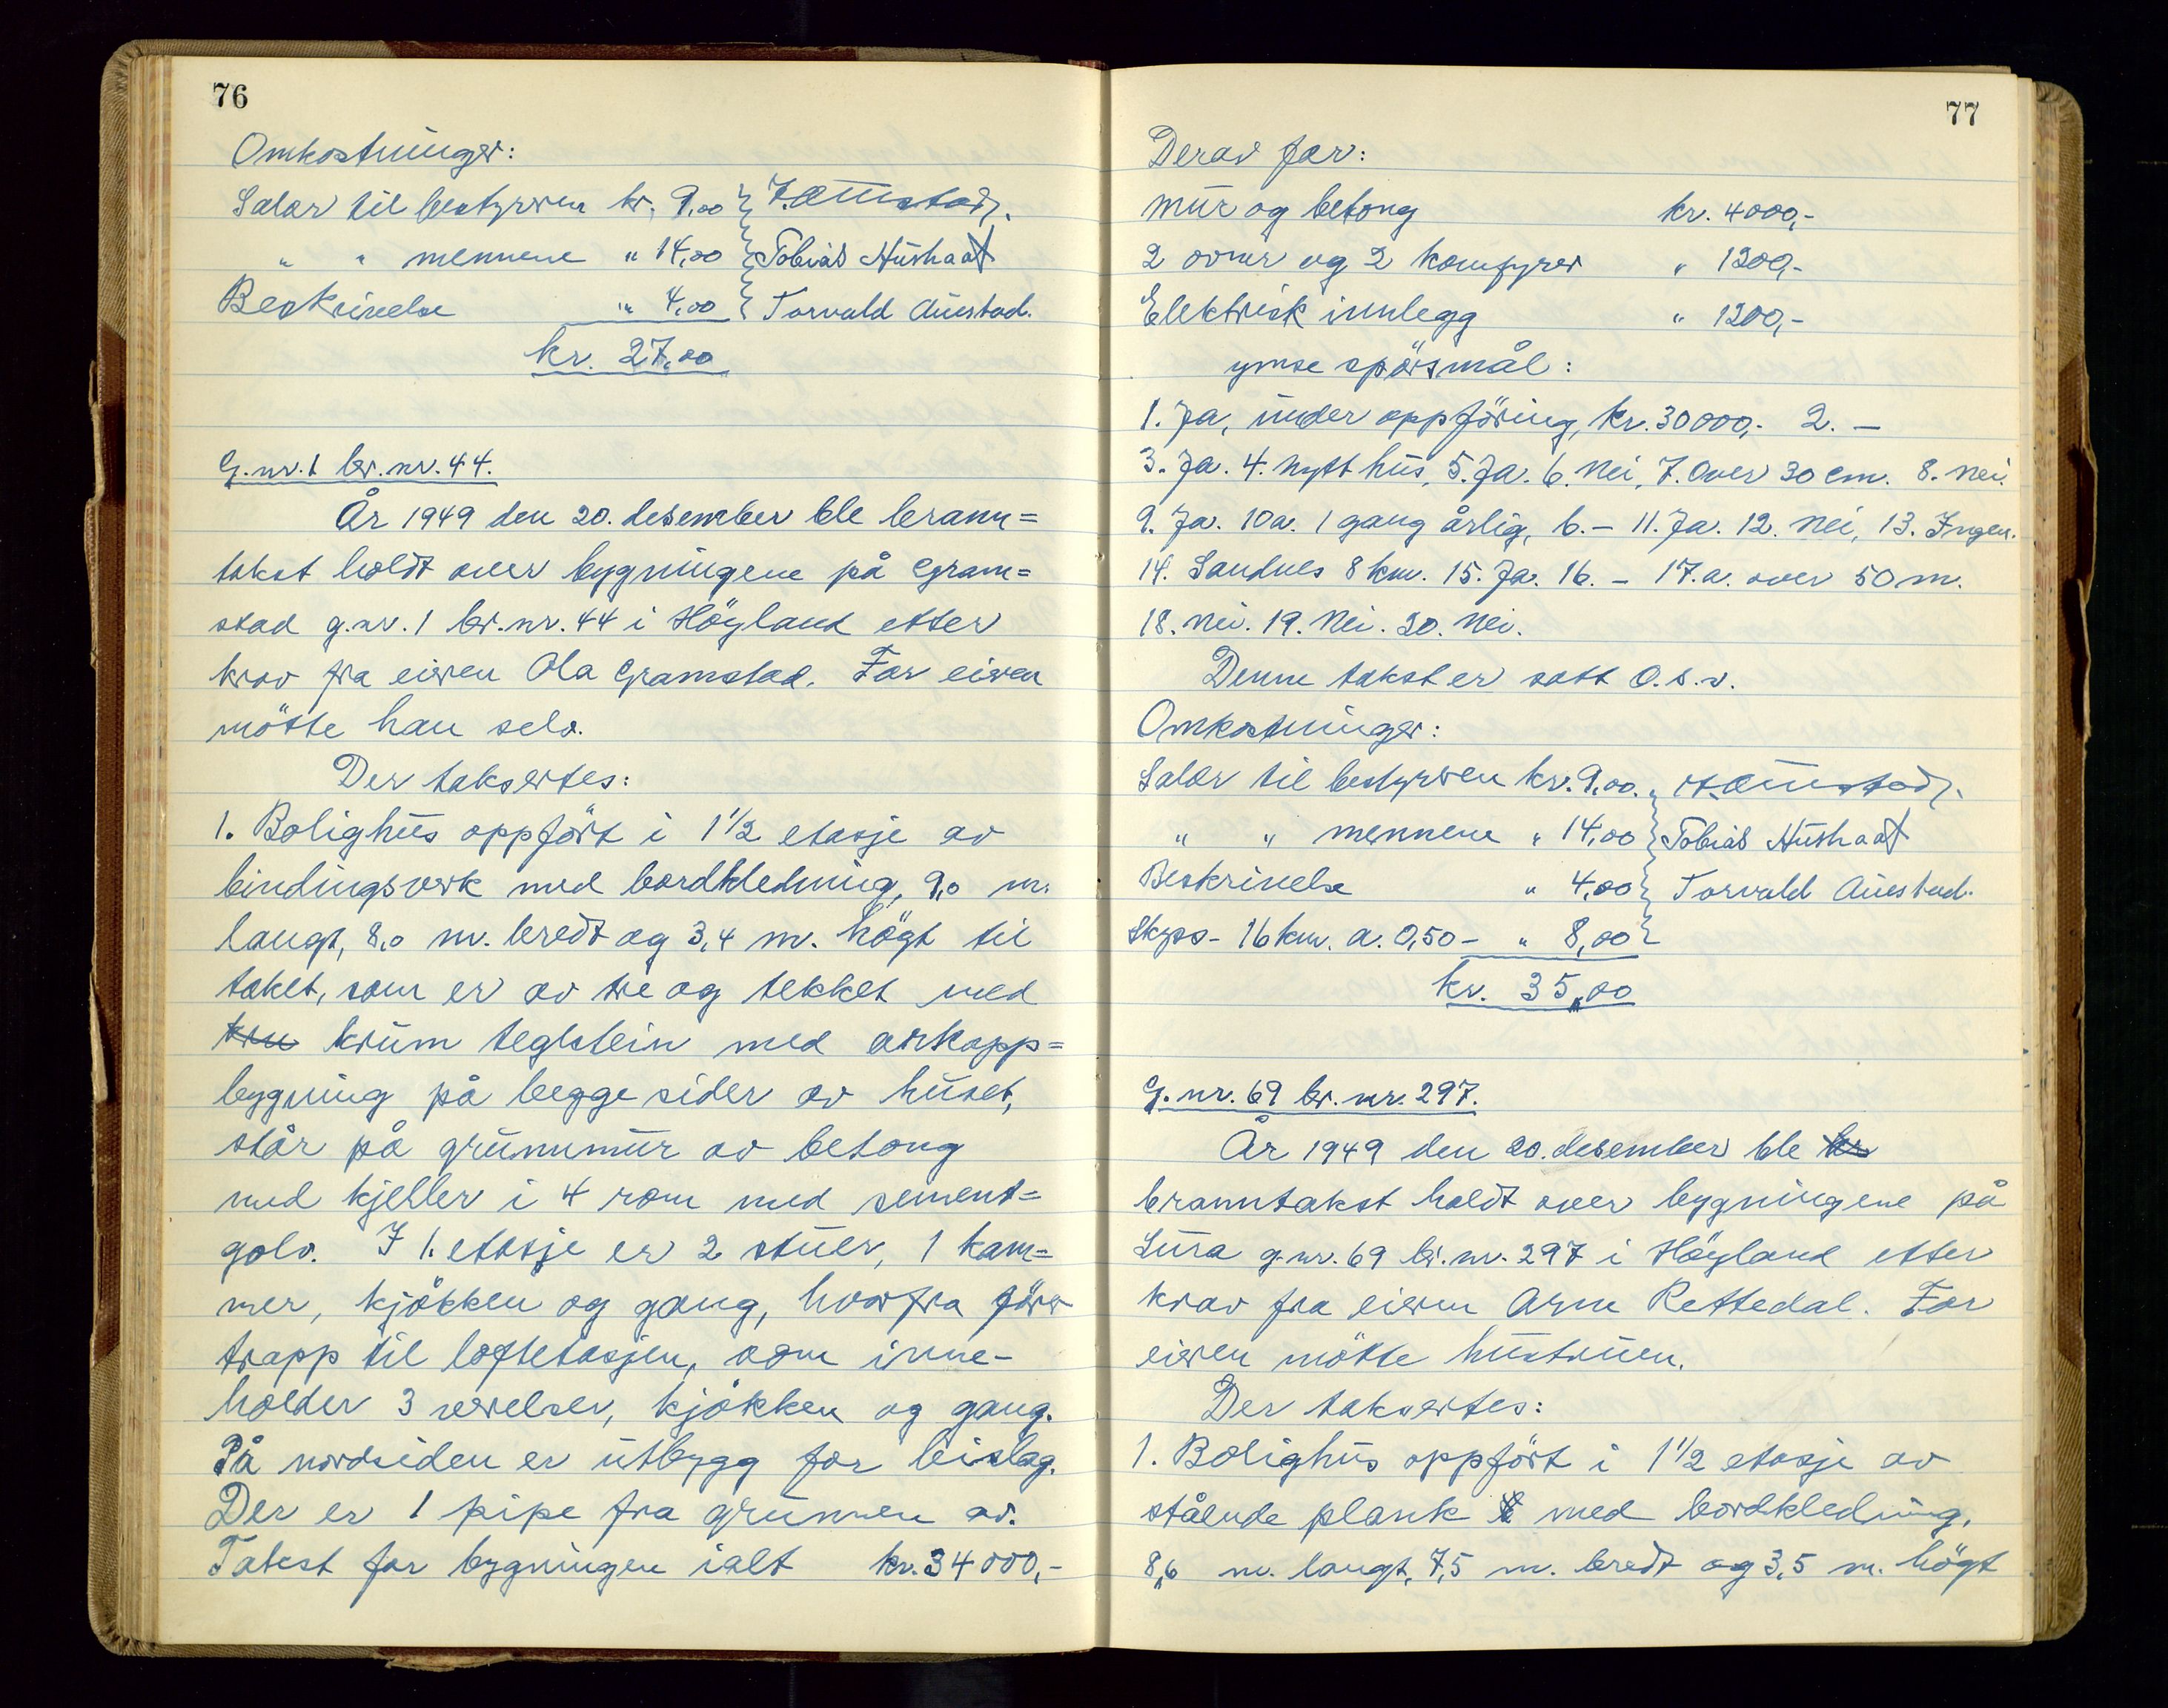 76
Omkostninger:
Salær til bestyreren kr. 9,00
" " mennene " 14,00 Tobias Hushaat
Beskrivelse " 4,00 Torvald Austad.
kr. 27,00
G.nr. 1 br.nr. 44.
År 1949 den 20. desember ble brann=
takst holdt over bygningene på Gram=
stad g.nr. 1 br.nr. 44 i Höyland etter
krav fra eieren Ola Gramstad. For eieren
mötte han selv.
Der taksertes:
1. Bolighus oppfört i 1 1/2 etasje av
bindingsverk med bordkledning, 9,0 m.
langt, 8,0 m. bredt og 3,4 m. högt til
taket, som er av tre og tekket med
kru krum teglstein med arkopp=
bygning på begge sider av huset,
står på grunnmur av betong
med kjeller i 4 rom med sement=
golv. I 1. etasje er 2 stuer, 1 kam=
mer, kjökken og gang, hvorfra förer
trapp til loftetasjen, som inne-
holder 3 værelser, kjökken og gang.
På nordsiden er utbygg for bislag.
Der er 1 pipe fra grunnen av.
Takst for bygningen ialt kr. 34000,-
77
Derav for:
mur og betong kr. 4000,-
2 ovner og 2 komfyrer " 1200,-
Elektrisk innlegg " 1200,-
ymse spörsmål:
1. Ja, under oppföring, kr. 30000,- 2. -
3. Ja. 4. Nytt hus, 5. Ja. 6. Nei, 7. Over 30 cm. 8. Nei.
9. Ja. 10a. 1 gang årlig, b. - 11. Ja. 12. Nei, 13. Ingen.
14. Sandnes 8 km. 15. Ja. 16. - 17. a. over 50 m.
18. Nei. 19. Nei. 20. Nei.
Denne takst er satt o.s.v.
Omkostninger:
Salær til bestyreren kr. 9,00.
" " mennene " 14,00 Tobias Hushaat
Beskrivelse " 4,00 Torvald Austad.
Skyss- 16 km. a. 0,50 - " 8,00
kr. 35,00
G.nr. 69 br.nr. 297.
År 1949 den 20. desember ble br
branntakst holdt over bygningene på
Lura g.nr. 69 br.nr. 297 i Höyland etter
krav fra eieren Arne Rettedal. For
eieren mötte hustruen.
Der taksertes:
1. Bolighus oppfört i 1 1/2 etasje av
stående plank med bordkledning,
8,6 m. langt, 7,5 m. bredt og 3,5 m. högt